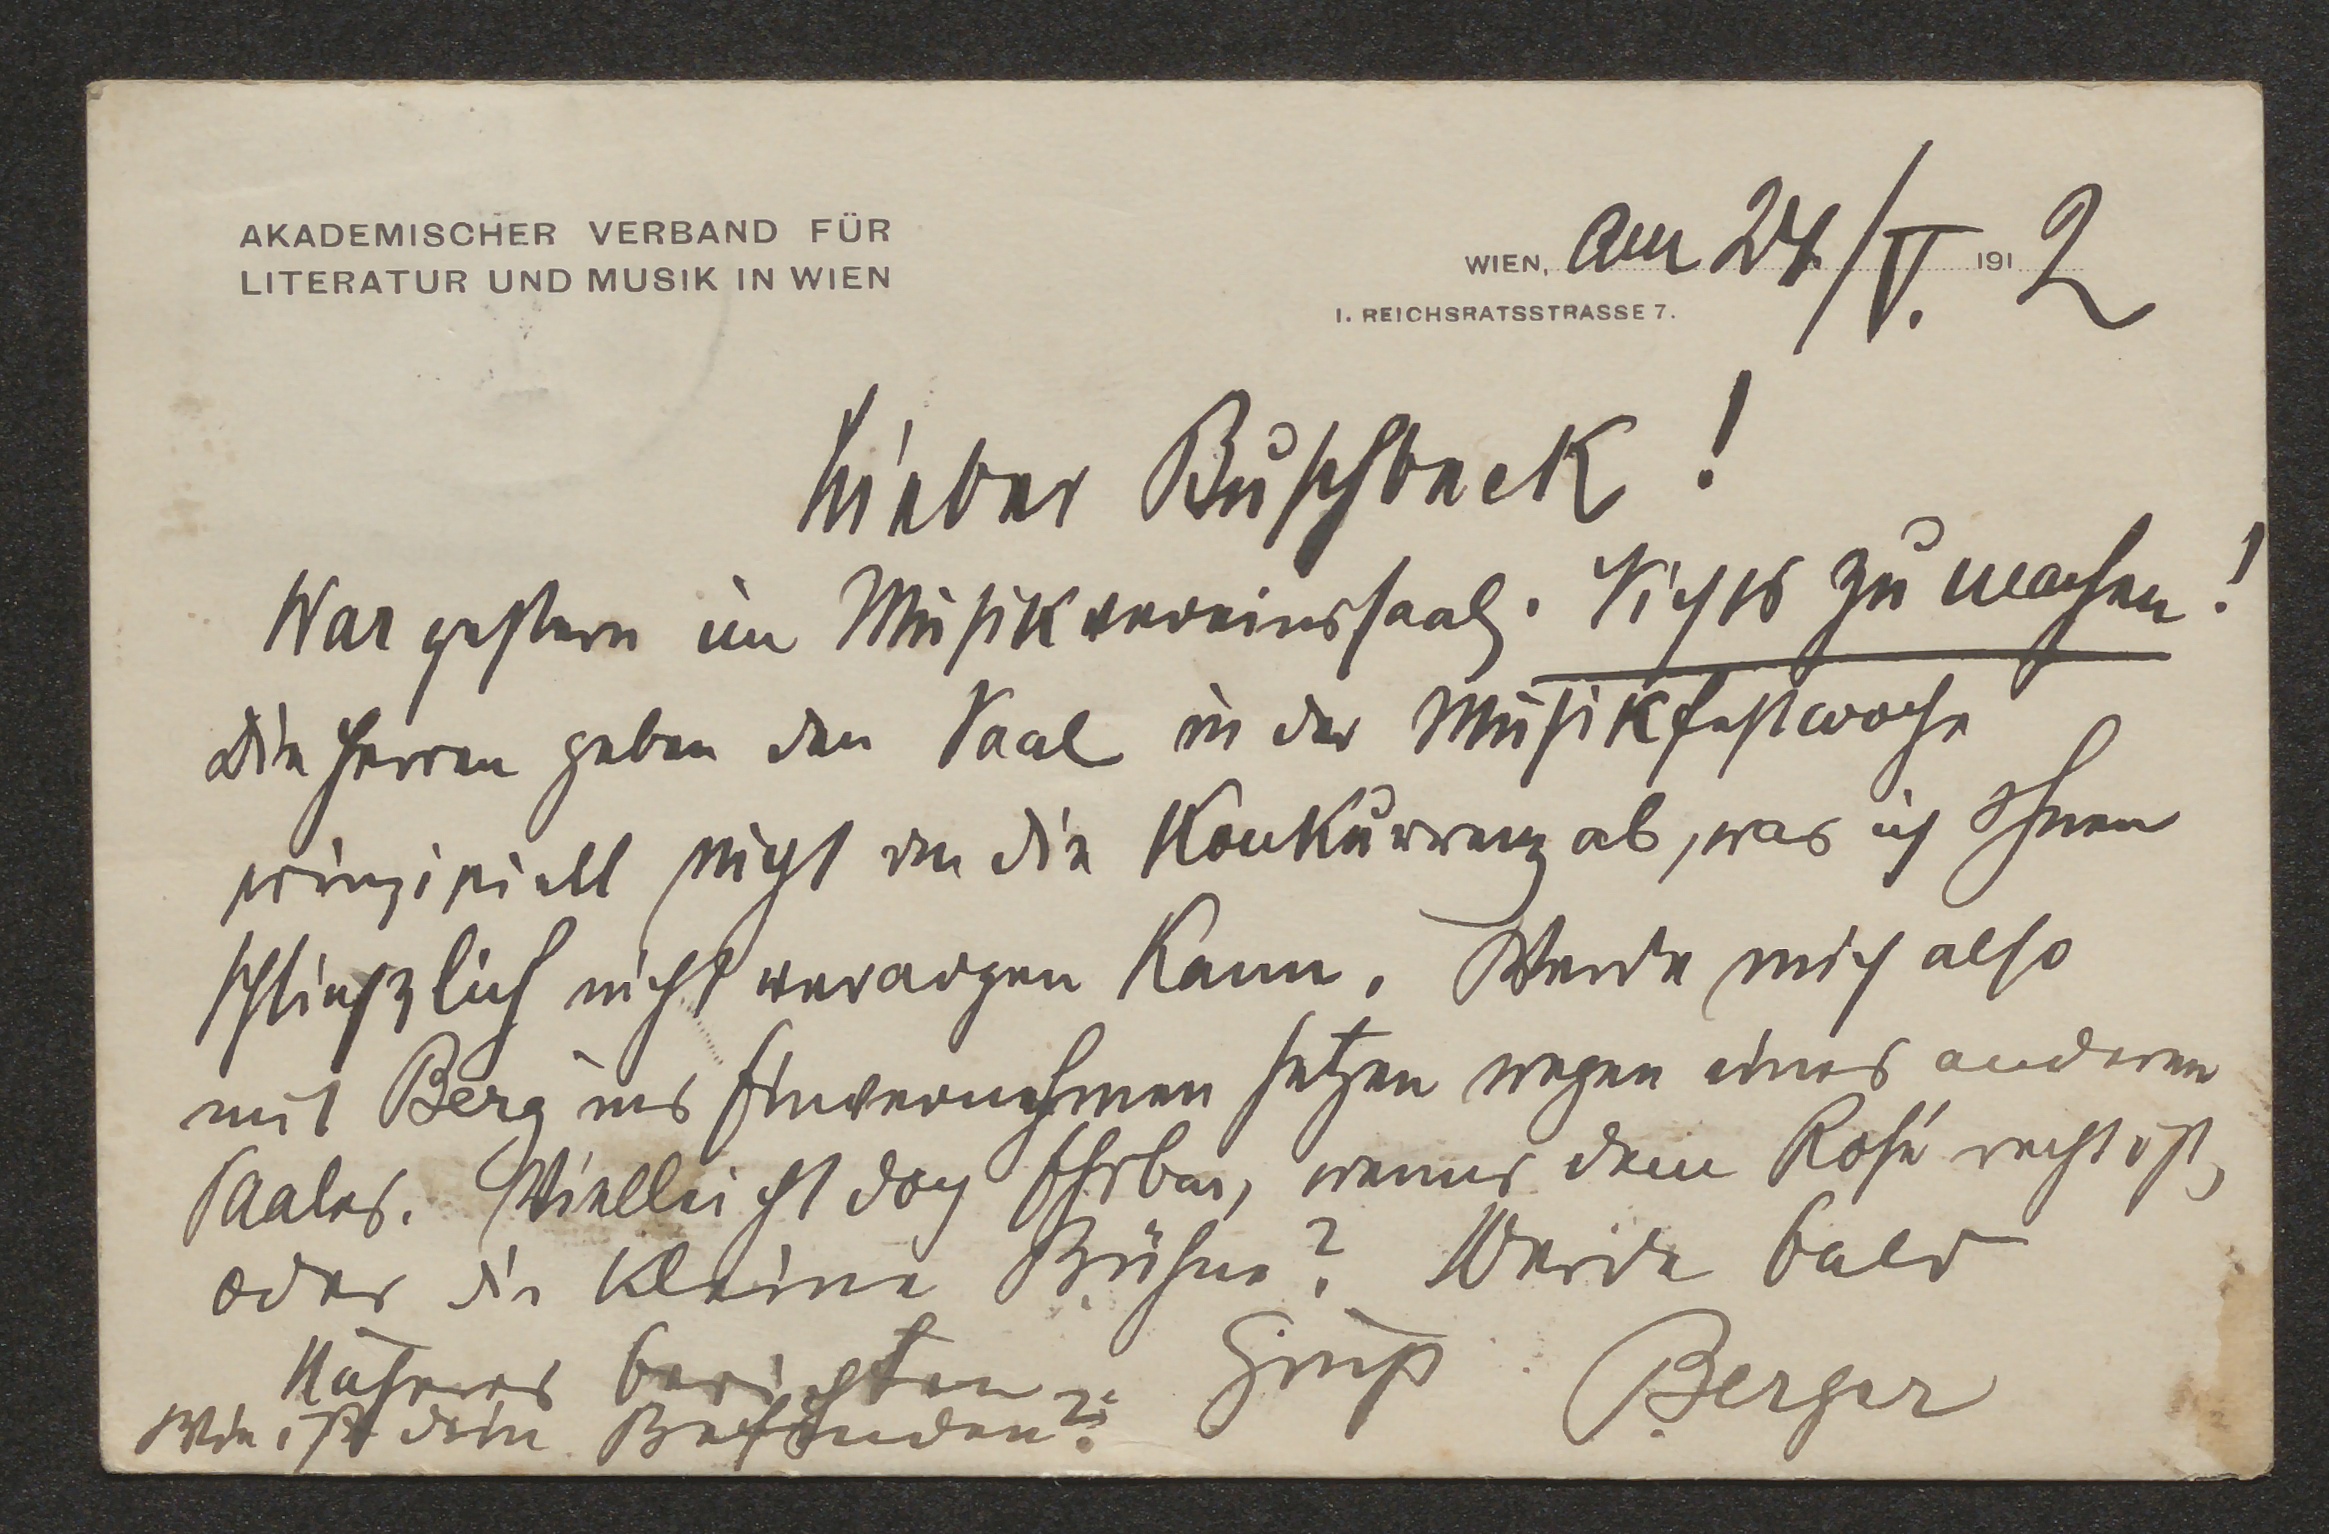 AKADEMISCHER VERBAND FÜR
LITERATUR UND MUSIK IN WIEN
WIEN, am 24./V. 1912
I. REICHSRATSSTRASSE 7.
Lieber Buschbeck!
War gestern im Musikvereinssaal. Nichts zu machen!
Die Herren geben den Saal in der Musikfestwoche
prinzipiell nicht an die Konkurrenz ab, was ich Ihnen
schlieszlich nicht verargen kann. Werde mich also
mit Berg ins Einvernehmen setzen wegen eines anderen
Saales. Vielleicht doch Ehrbar, wenns dem Rosé recht ist,
oder die kleine Bühne? Werde bald
Näheres berichten. Gruß Berger
Wie ist dein Befinden?